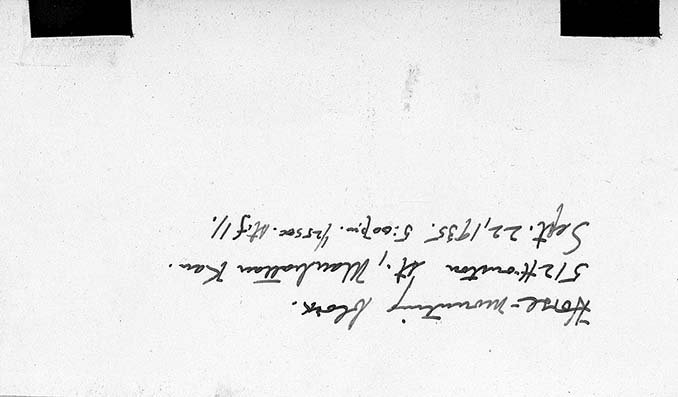 Horse-mounting block.
512 Houston St., Manhattan Kan.
Sept. 22, 1935. 5:00 p.m. 1/25 sec. at f 11.